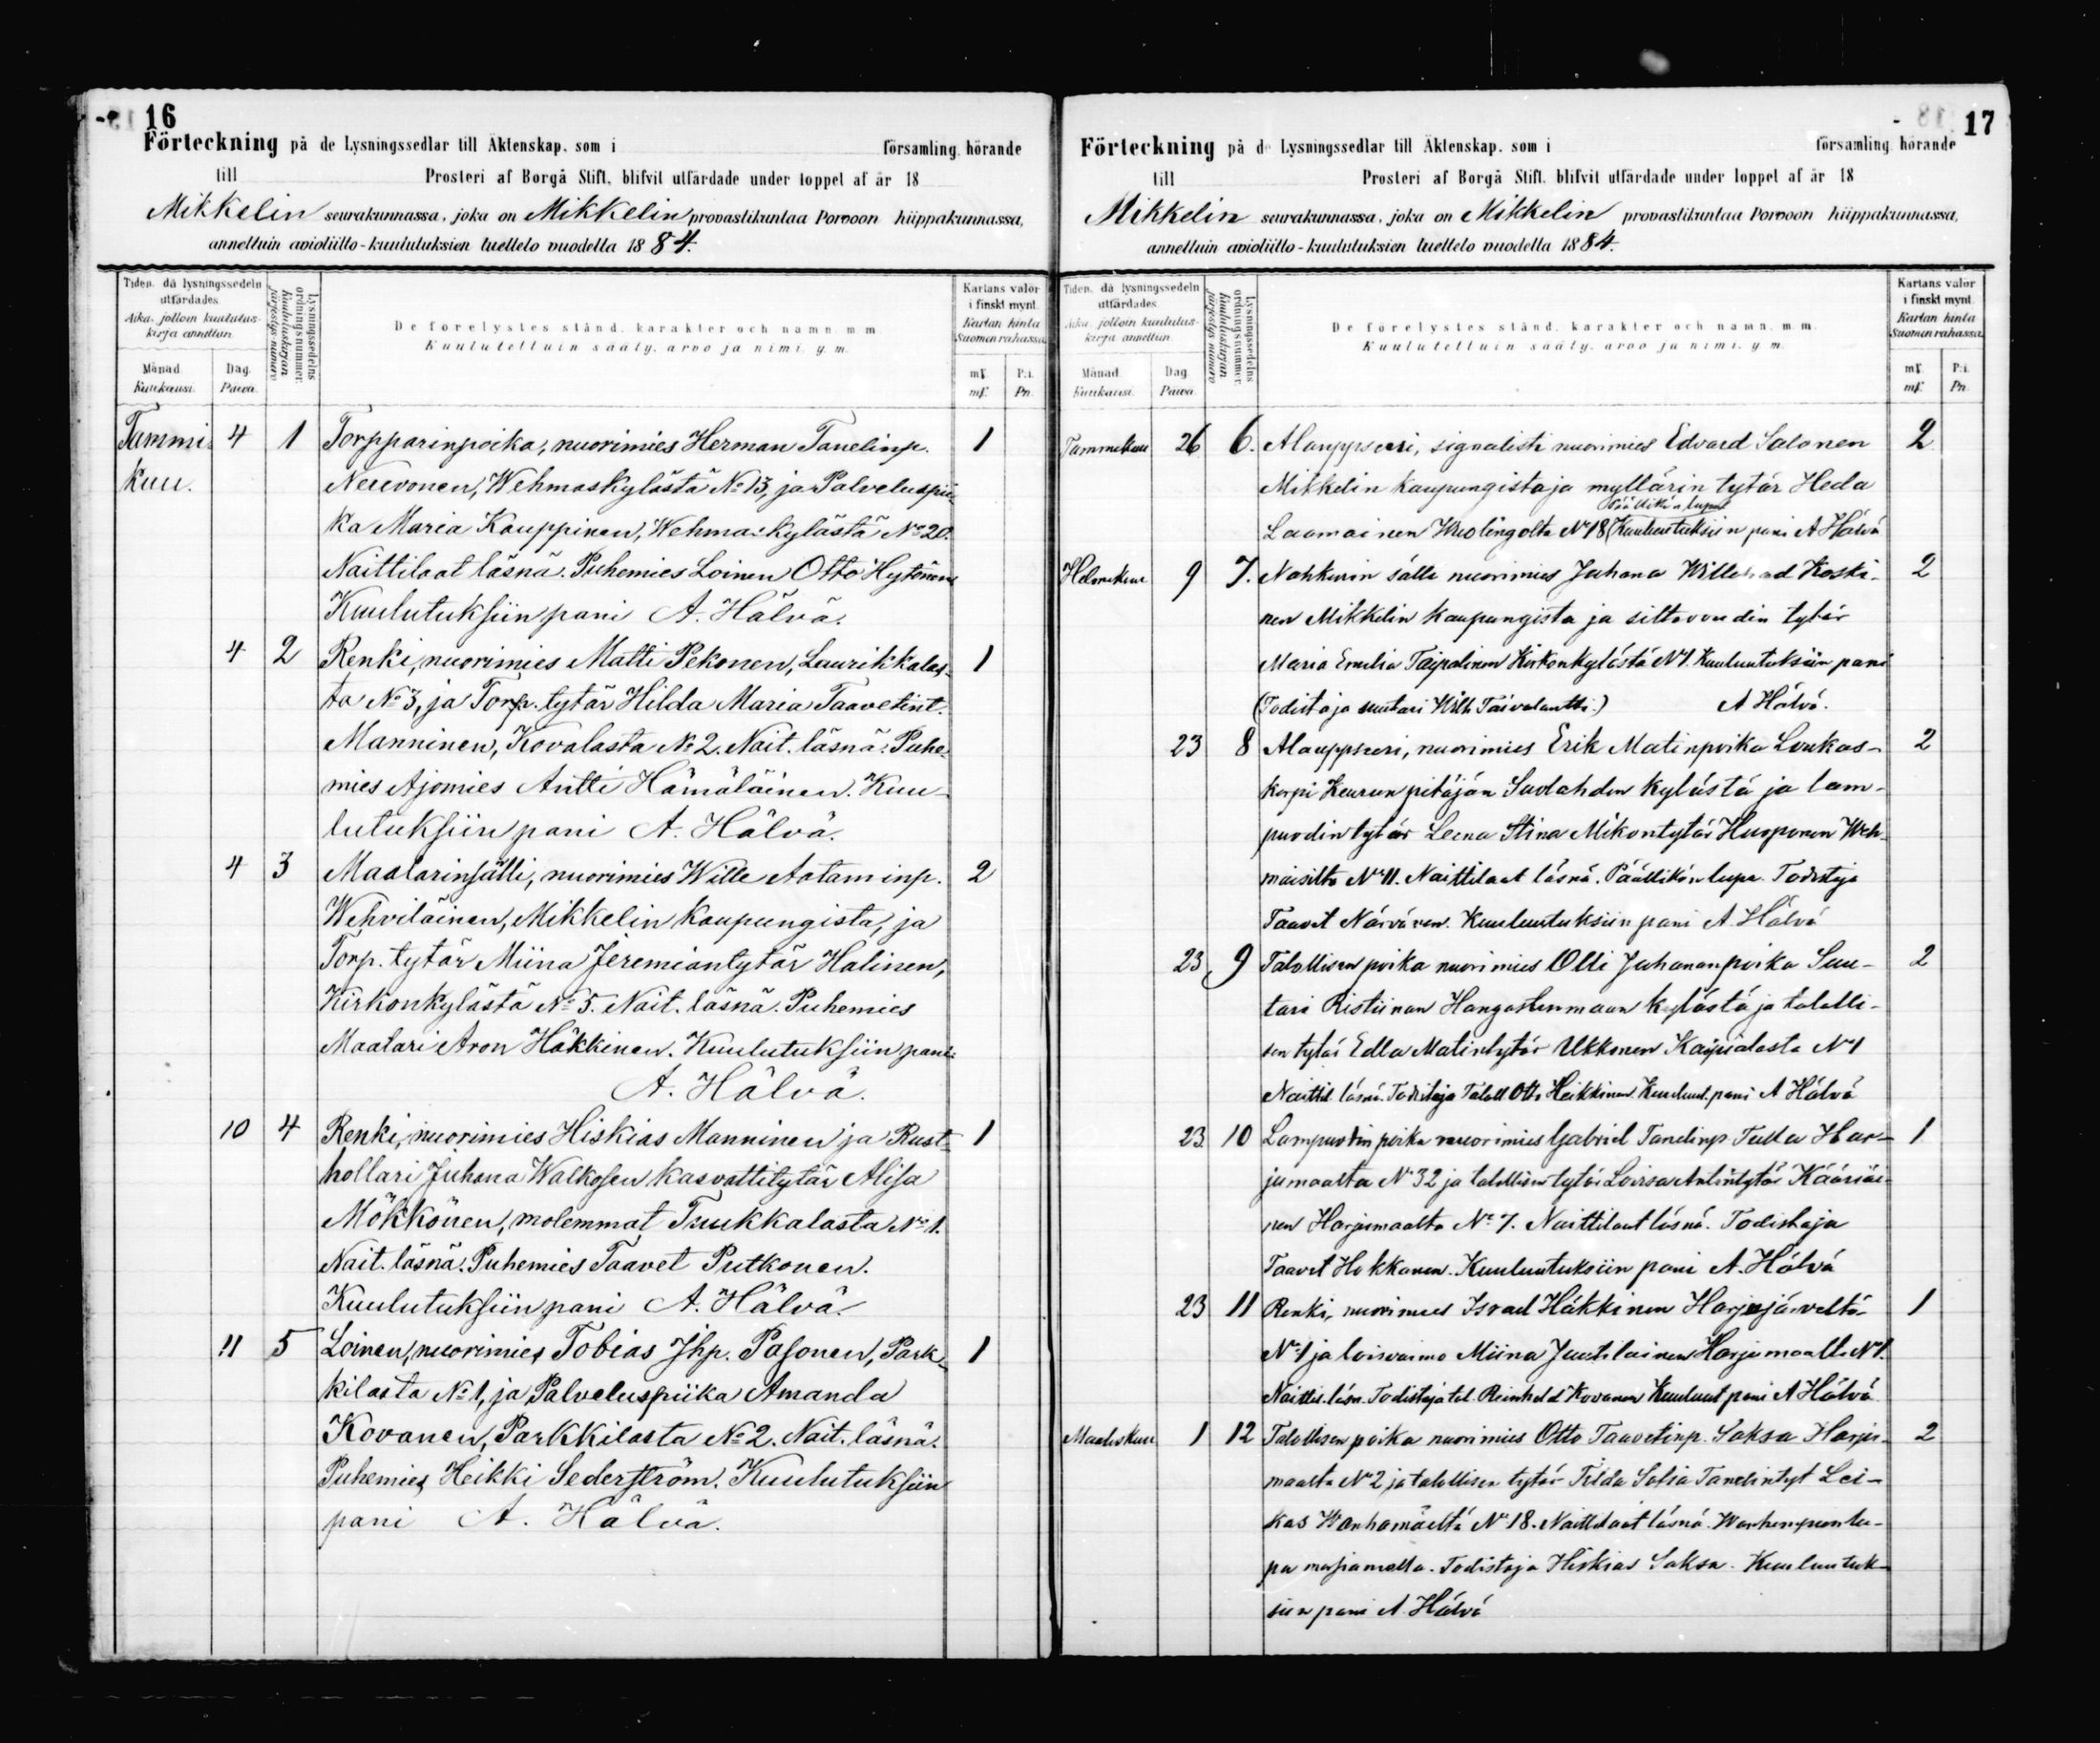 16
Förteckning på de Lysningssedlar till Äktenskap, som i församling hörande
till Prosteri af Borgå Stift, blifvit utfärdade under loppet af år 18
Mikkelin seurakunnassa, joka on Mikkelin provastikuntaa Porvoon hiippakunnassa,
annettuin avioliitto-kuulutuksien luettelo vuodella 1884.
Tiden, då lysningssedeln utfärdades.
Aika, jolloin kuulutuskirja annettun.
Månad. Kuukausi.
Dag. Päivä.
Lysningssedelns ordningsnummer.
Kuulutuskirjan järjestys-numero
De förelystes stånd, karakter och namn, m.m.
Kuulutettuin sääty, arvo ja nimi, y.m.
Kartans valör i finskt mynt.
Kartan hinta Suomen rahassa
mk. P:i.
mk. Pn.
Tammi- 4 1 Torpparinpoika, nuorimies Herman Tanelinp. 1
kuu. Neuvonen, Wehmaskylästä No 13, ja Palveluspii-
ka Maria Kauppinen, Wehmaskylästä No 20.
Naittilaat läsnä. Puhemies Loinen Otto Hytönen
Kuulutuksiin pani A. Hälvä.
4 2 Renki, nuorimies Matti Pekonen, Laurikkalas- 1
ta No 3, ja Torp. tytär Hilda Maria Taavetint.
Manninen, Kovalasta No 2. Nait. läsnä. Puhe-
mies Ajomies Antti Hämäläinen. Kuu-
lutuksiin pani A. Hälvä.
4 3 Maalarinsälli, nuorimies Wille Aataminp. 2
Wehviläinen, Mikkelin kaupungista, ja
Torp. tytär Miina Jeremiantytär Halinen,
Kirkonkylästä No 5. Nait. läsnä. Puhemies
Maalari Aron Häkkinen. Kuulutuksiin pani
A. Hälvä.
10 4 Renki, nuorimies Hiskias Manninen ja Rust- 1
hollari Juhana Walkosen kasvattitytär Alisa
Mökkönen, molemmat Tuukkalasta No 1.
Nait. läsnä. Puhemies Taavet Putkonen.
Kuulutuksiin pani A. Hälvä.
11 5 Loinen, nuorimies Tobias Jhp. Pasonen, Park- 1
kilasta No 1, ja Palveluspiika Amanda
Kovanen, Parkkilasta No 2. Nait. läsnä.
Puhemies Heikki Sederström. Kuulutuksiin
pani A. Hälvä.
17
Förteckning på de Lysningssedlar till Äktenskap, som i församling hörande
till Prosteri af Borgå Stift, blifvit utfärdade under loppet af år 18
Mikkelin seurakunnassa, joka on Mikkelin provastikuntaa Porvoon hiippakunnassa,
annettuin avioliitto-kuulutuksien luettelo vuodella 1884.
Tiden, då lysningssedeln utfärdades.
Aika, jolloin kuulutuskirja annettun.
Månad. Kuukausi.
Dag. Päivä.
Lysningssedelns ordningsnummer.
Kuulutuskirjan järjestys-numero
De förelystes stånd, karakter och namn, m.m.
Kuulutettuin sääty, arvo ja nimi, y.m.
Kartans valör i finskt mynt.
Kartan hinta Suomen rahassa
mk. P:i.
mk. Pn.
Tammikuu 26 6. Alauppseeri, signalisti nuorimies Edvard Salonen 2
Mikkelin kaupungista ja myllärin tytär Heda
Päällikön lupa
Laamainen No 18 Kuuluutuksiin pani A Hälvä
Helmikuu 9 7. Nahkurin sälli nuorimies Juhana Willehad Koski- 2
nen Mikkelin kaupungista ja siltavoudin tytär
Maria Emilia Taipalinen Kirkonkylästä No 1. Kuuluutuksiin pani
(Todistaja suutari Wilh Taivalantti.) A Hälvä.
23 8 Alauppseeri, nuorimies Erik Matinpoika Loukas- 2
korpi Keuruun pitäjän Suolahden kylästä ja lam-
puodin tytär Leena Stina Mikontytär Huoponen Weh-
maisilta No 11. Naittilaat läsnä. Päällikön lupa. Todistaja
Taavit Närvänen. Kuuluutuksiin pani A Hälvä
23 9 Talollisen poika nuorimies Olli Juhananpoika Suu- 2
tari Ristiinan Hangastenmaan kylästä ja talolli-
sen tytär Edla Matintytär Ukkonen Kaipialasta No 1
Naittil. läsnä. Todistaja Taloll Otto Heikkinen Kuuluut. pani A Hälvä
23 10 Lampuodin poika nuorimies Gabriel Tanelinp Tulla Har- 1
jumaalta No 32 ja talollisen tytär Loviisa Antintytär Kääriäi-
nen Harjumaalta No 7. Naittilaat läsnä. Todistaja
Taavit Hokkanen. Kuuluutuksiin pani A. Hälvä
23 11 Renki, nuorimies Israel Häkkinen Harjujärveltä 1
No 1 ja loisvaimo Miina Juutilainen Harjumaalta No 1.
Naittil. läsn. Todistaja tal. Reinhold Kovanen Kuuluut pani A Hälvä
Maaliskuu 1 12 Talollisen poika nuorimies Otto Taavetinp. Saksa Harju- 2
maalta No 2 ja talollisen tytär Tilda Sofia Tanelintyt Lei-
kas Wanhamäeltä No 18. Naittilaat läsnä. Wanhempain lu-
pa Todistaja Hiskias Saksa. Kuuluutuk-
siin pani A. Hälvä